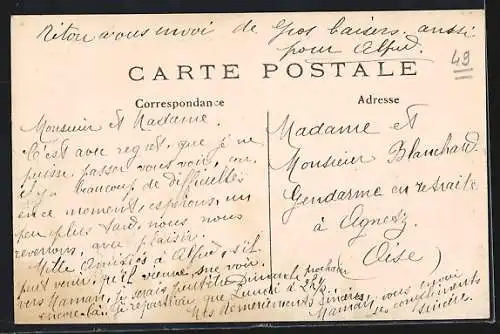 Riton vous envoi de gros baisers. aussi
pour Alfred.
49
CARTE POSTALE
Correspondance
Adresse
Monsieur et Madame.
C'est avec regret, que je ne
puisse, passer vous voir, car
il y a beaucoup de difficultés
en ce moment, espérons, un
peu plus tard, nous nous
reverrons, avec plaisir.
Mille Amitiés à Alfred, s'il
peut venir, qu'il vienne me voir.
vers Maman, je serais peut-être dimanche prochain
encore là. Je repartirai que Lundi à 2h
Mes remerciements sincères,
Maman, vous envoi
ses compliments
sincère.
Madame et
Monsieur Blanchard
Gendarme en retraite
à Agnetz
(Oise)